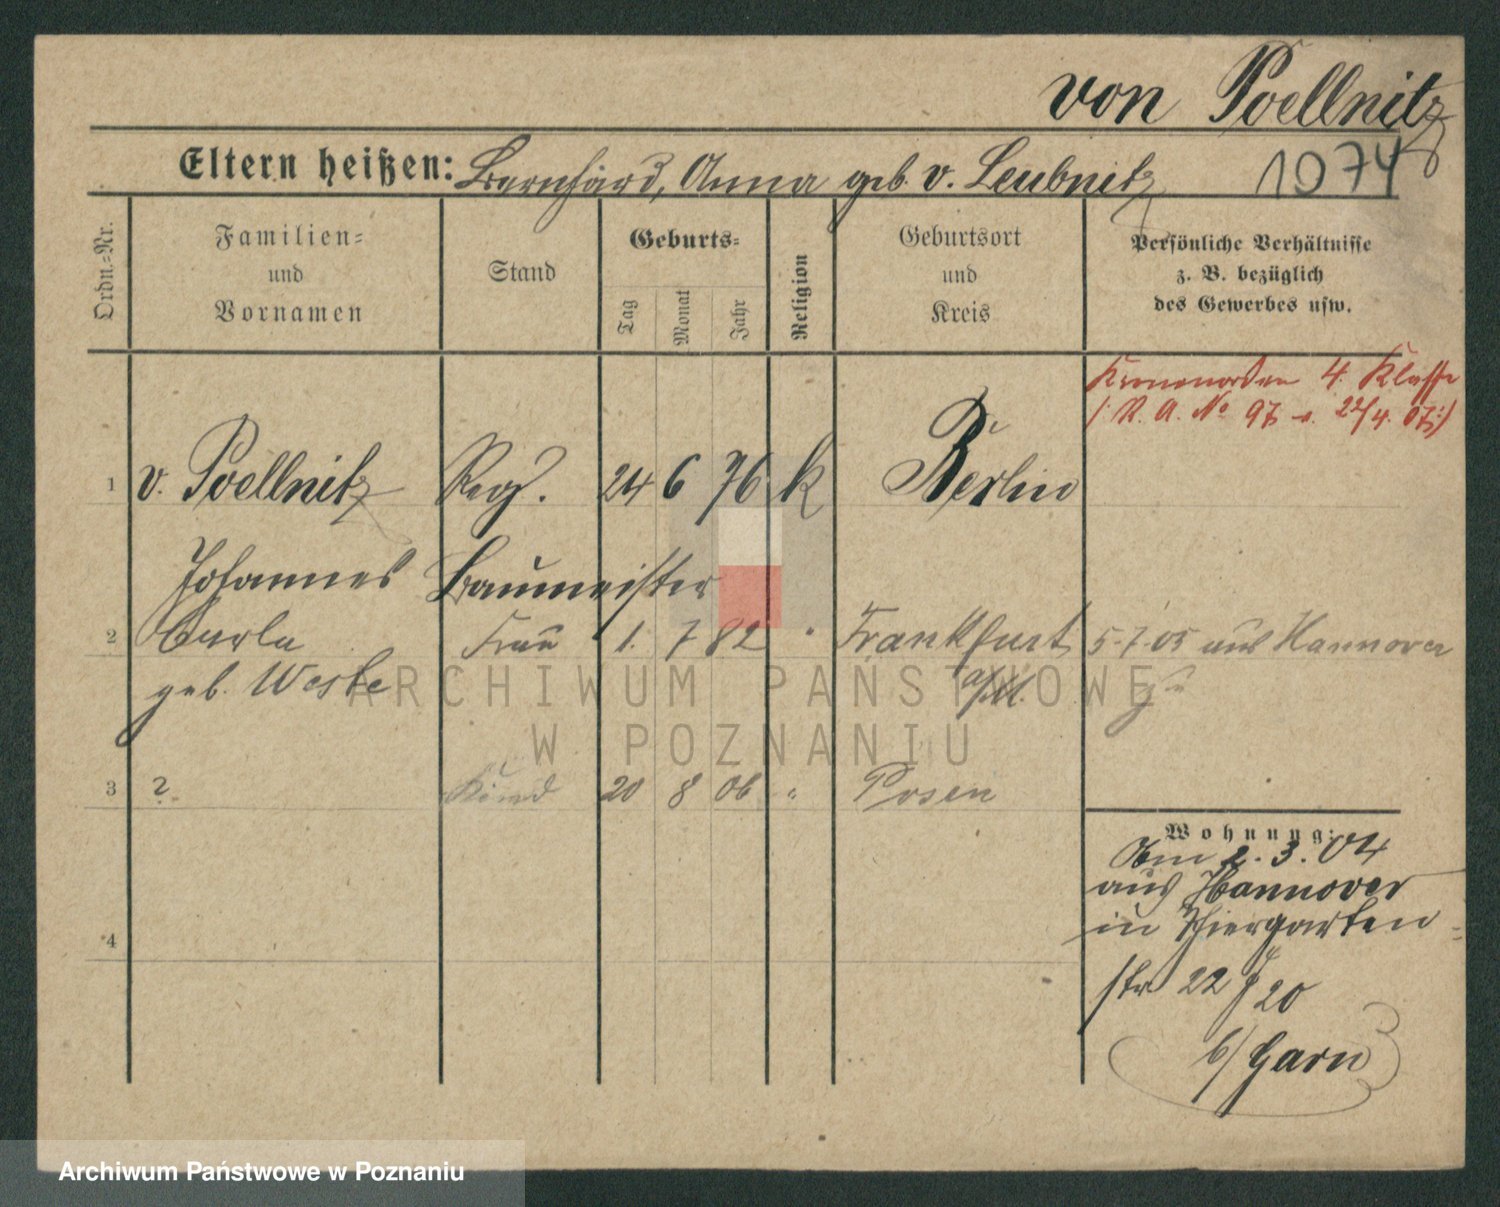 von Poellnitz
Eltern heißen: Bernhard, Anna geb. v. Leubnitz
1074
Ordn.-Nr.
Familien- und Vornamen
Stand
Geburts-
Tag
Monat
Jahr
Religion
Geburtsort und Kreis
Persönliche Verhältnisse
z. B. bezüglich
des Gewerbes usw.
Kronenorden 4. Klasse
(: R. A. No 97 v. 22/4. 07 :)
1 v. Poellnitz Reg. 24 6 76 k Berlin
Johannes Baumeister
2 Carla Frau 1. 7 82 " Frankfurt 5.7.05 aus Hannover
geb. Weste a/M.
3 ? Kind 20 8 06 " Posen
4
Wohnung:
Am 2.3.04
aus Hannover
in Thiergarten-
str 22 20
b/ Garn
ARCHIWUM PAŃSTWOWE
W POZNANIU
Archiwum Państwowe w Poznaniu